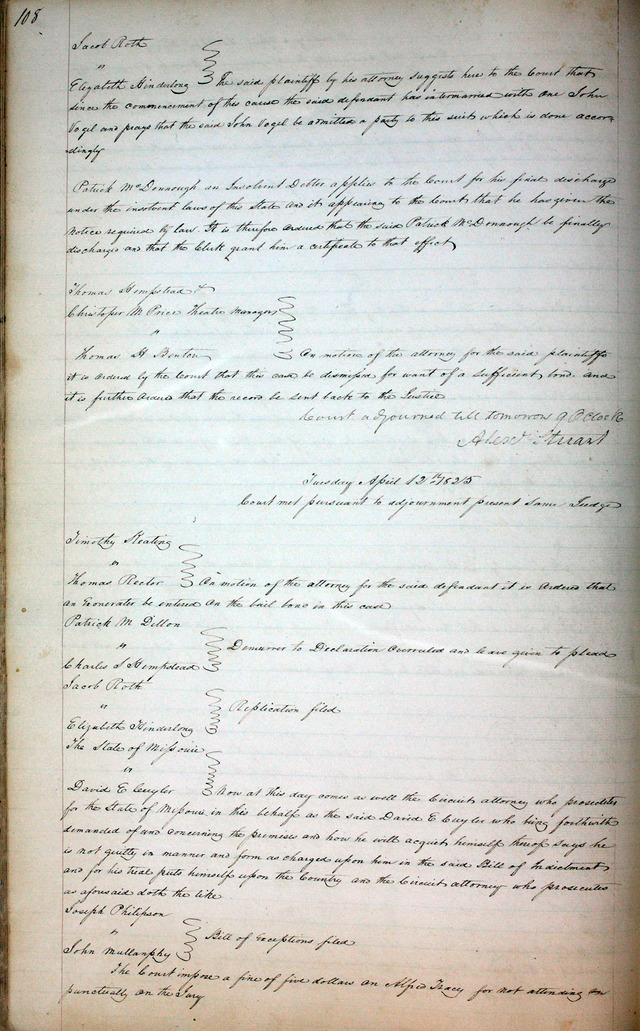 108
Jacob Roth
"
Elizabeth Hinderlong The said plaintiff by his attorney suggests here to the Court that
since the commencement of this cause the said defendant has intermarried with one John
Vogel and prays that the said John Vogel be admitted a party to this suit which is done accor
dingly
Patrick McDonnough an Insolvent Debtor applies to the Court for his final discharge
under the insolvent laws of the State and it appearing to the Court that he has given the
Notice required by law. It is therefore ordered that the said Patrick McDonnough be finally
discharged and that the Clerk grant him a certificate to that effect
Thomas Hempstead &
Christopher M Price Theatre Managers
"
Thomas H Benton On motion of the attorney for the said plaintiffs
it is ordered by the Court that this case be dismissed for want of a sufficient bond and
it is further ordered that the record be sent back to the Justice
Court adjourned till tomorrow 9 OClock
Alexr Stuart
Tuesday April 12th 1825
Court met pursuant to adjournment present Same Judge
Timothy Keating
"
Thomas Rector On motion of the attorney for the said defendant it is ordered that
an Exonerater be entered on the bail bond in this case
Patrick M Dillon
"
Charles S Hempstead Demurrer to Declaration overruled and leave given to plead
Jacob Roth
"
Elizabeth Hinderlong Replication filed
The State of Missouri
"
David E Cuyler Now at this day comes as well the Circuit attorney who prosecutes
for the State of Missouri in this behalf as the said David E Cuyler who being forthwith
demanded of and concerning the premises and how he will acquit himself thereof says he
is not guilty in manner and form as charged upon him in the said Bill of Indictment
and for his trial puts himself upon the Country and the Circuit attorney who prosecutes
as aforesaid doth the like
Joseph Philipson
"
John Mullanphy Bill of Exceptions filed
The Court impose a fine of five dollars on Alfred Tracy for not attending
punctually on the Jury